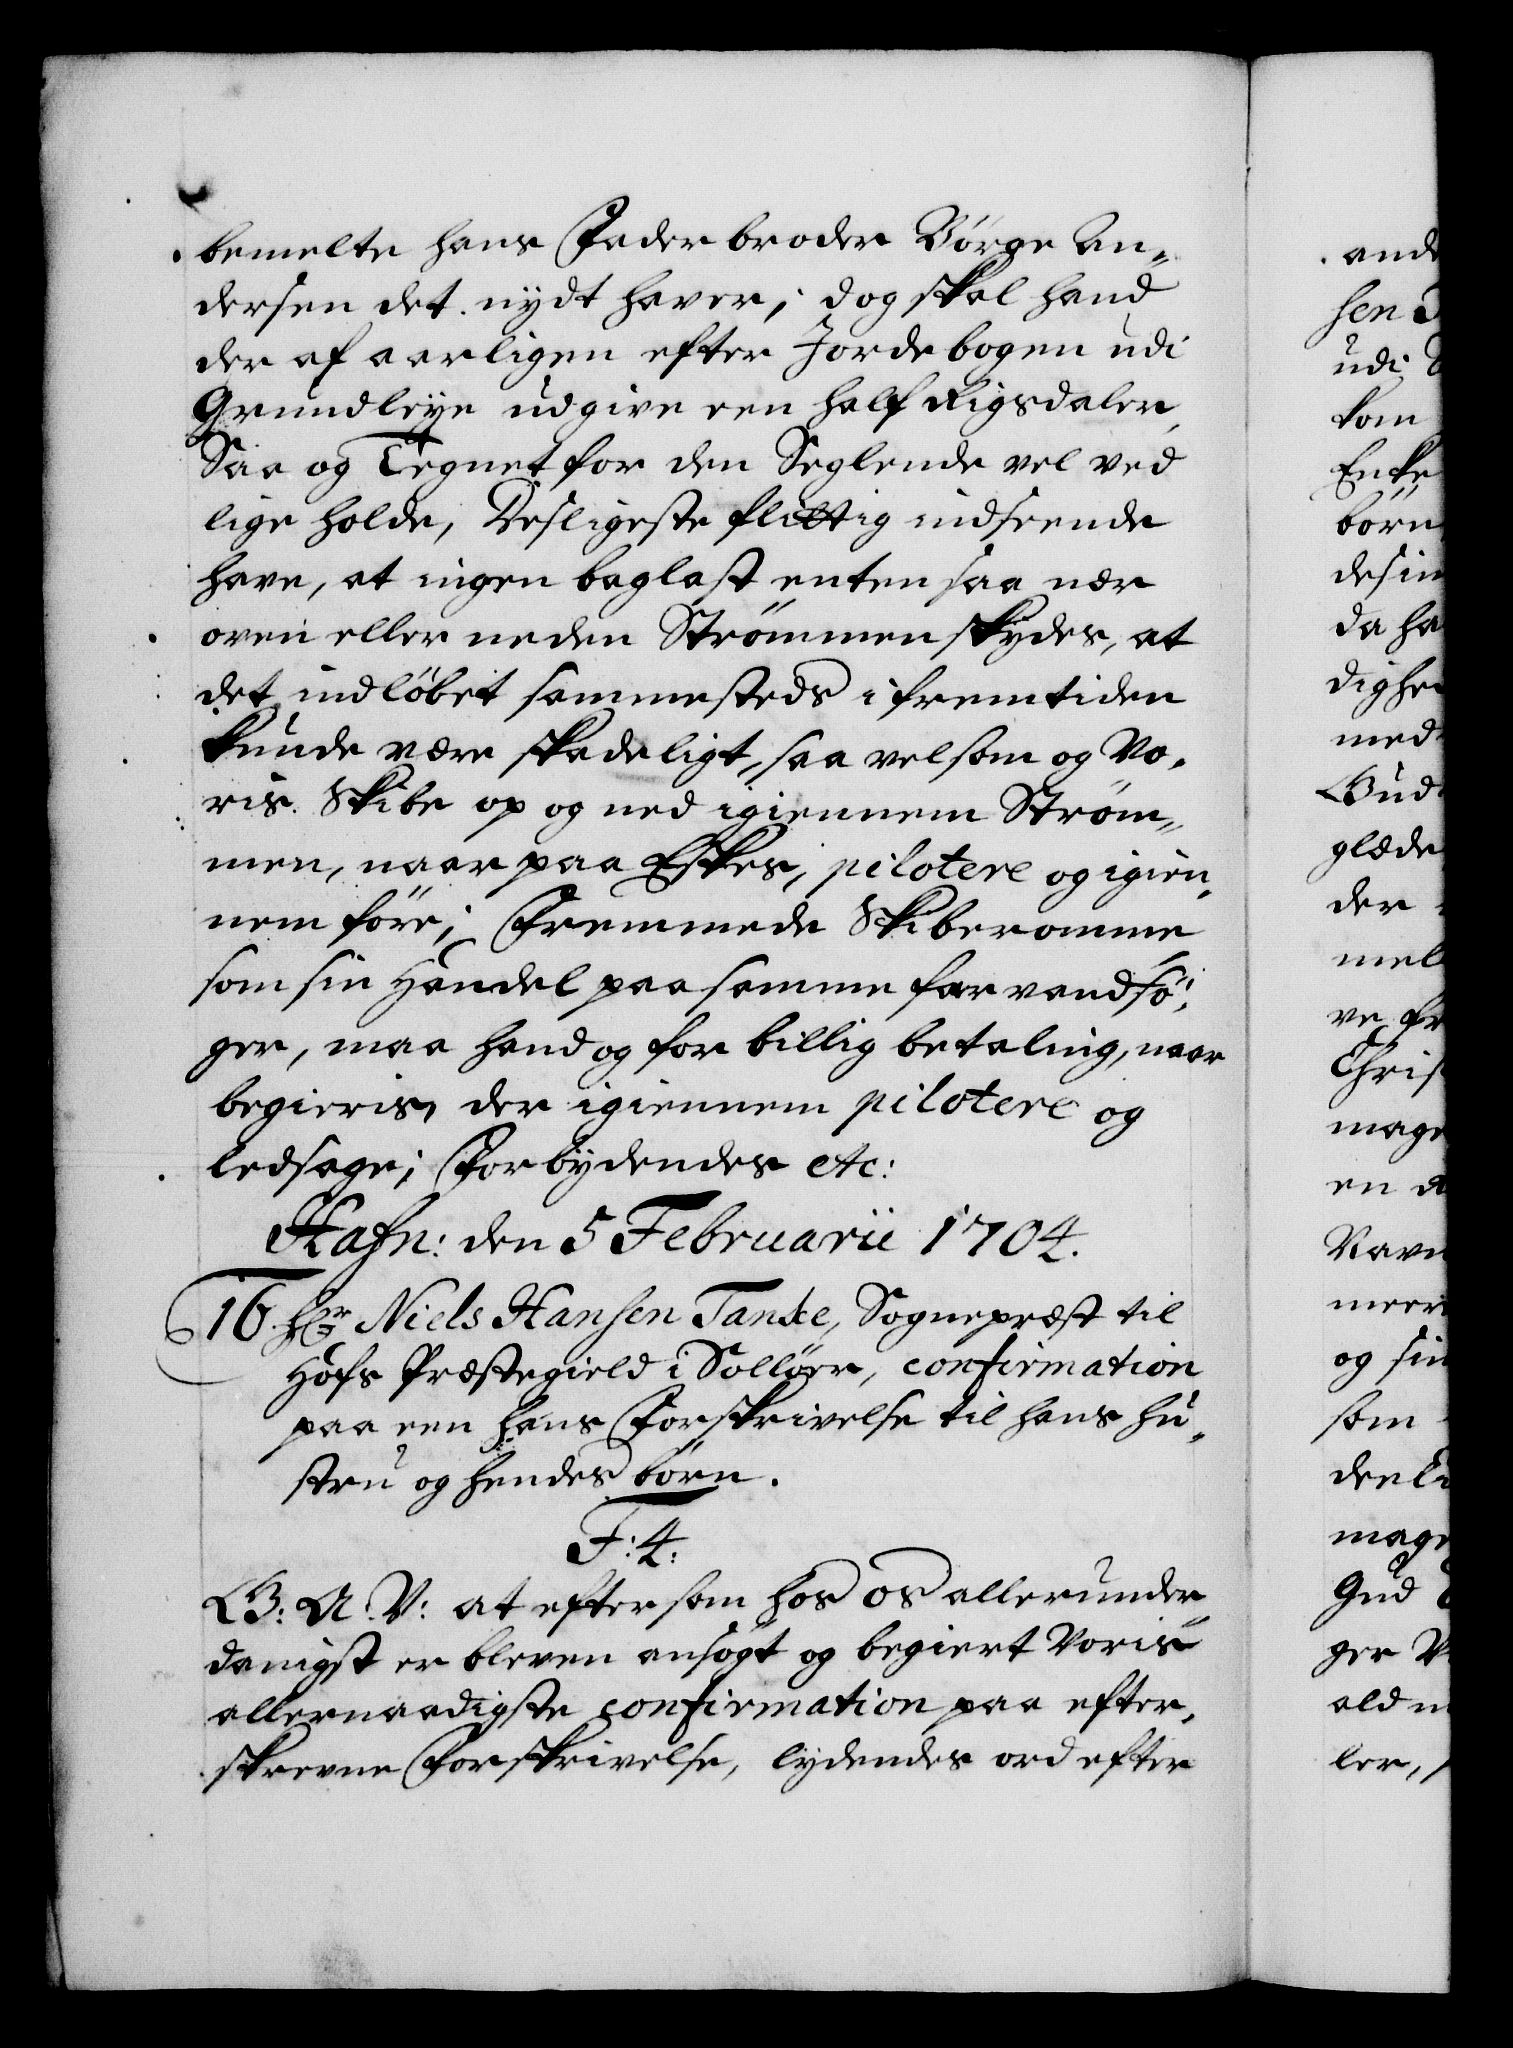 bemelte hans Faderbroder Börge An„
dersen det nÿdt haver; dog skal hand
der af aarligen efter Jordebogen udi
Grundleÿe udgive een half Rigsdaler,
Saa og Tegnet for den Seglende vel ved
lige holde, Desligeste flittig indseende
have, at ingen baglast enten saa nær
oven eller neden Strömmen skÿdes, at
det indlöbet sammesteds i fremtiden
kunde være skadeligt, saa velsom og Vo„
ris Skibe op og ned igiennem Ström„
men, naar paa Eskes, pilotere og igien„
nem före; Fremmede Skiberomme
som sin Handel paa samme farvand sö„
ger, maa hand og for billig betaling, naar
begieris, der igiennem pilotere og
ledsage; Forbÿdendes etc:
Hafn: den 5 Februarii 1704.
16 Hr Niels Hansen Tanke, Sognepræst til
Hofs Præstegield i Sollöer, confirmation
paa een hans Forskrivelse til hans hu„
stru og hendes börn.
F: 4:
G: A. V: at eftersom hos os allerunder„
danigst er bleven ansögt og begiert Voris
allernaadigste confirmation paa efter„
skrevne Forskrivelse, lÿdendes ord efter
ande
sen
udi
kom
Enke
börn
desim
da ha
dighe
med
Gud
glæde
der
mel
ve fr
Chris
mage
en
Navn
meere
og sin
som
deel
mage
Gud
ger V
ald m
ler,